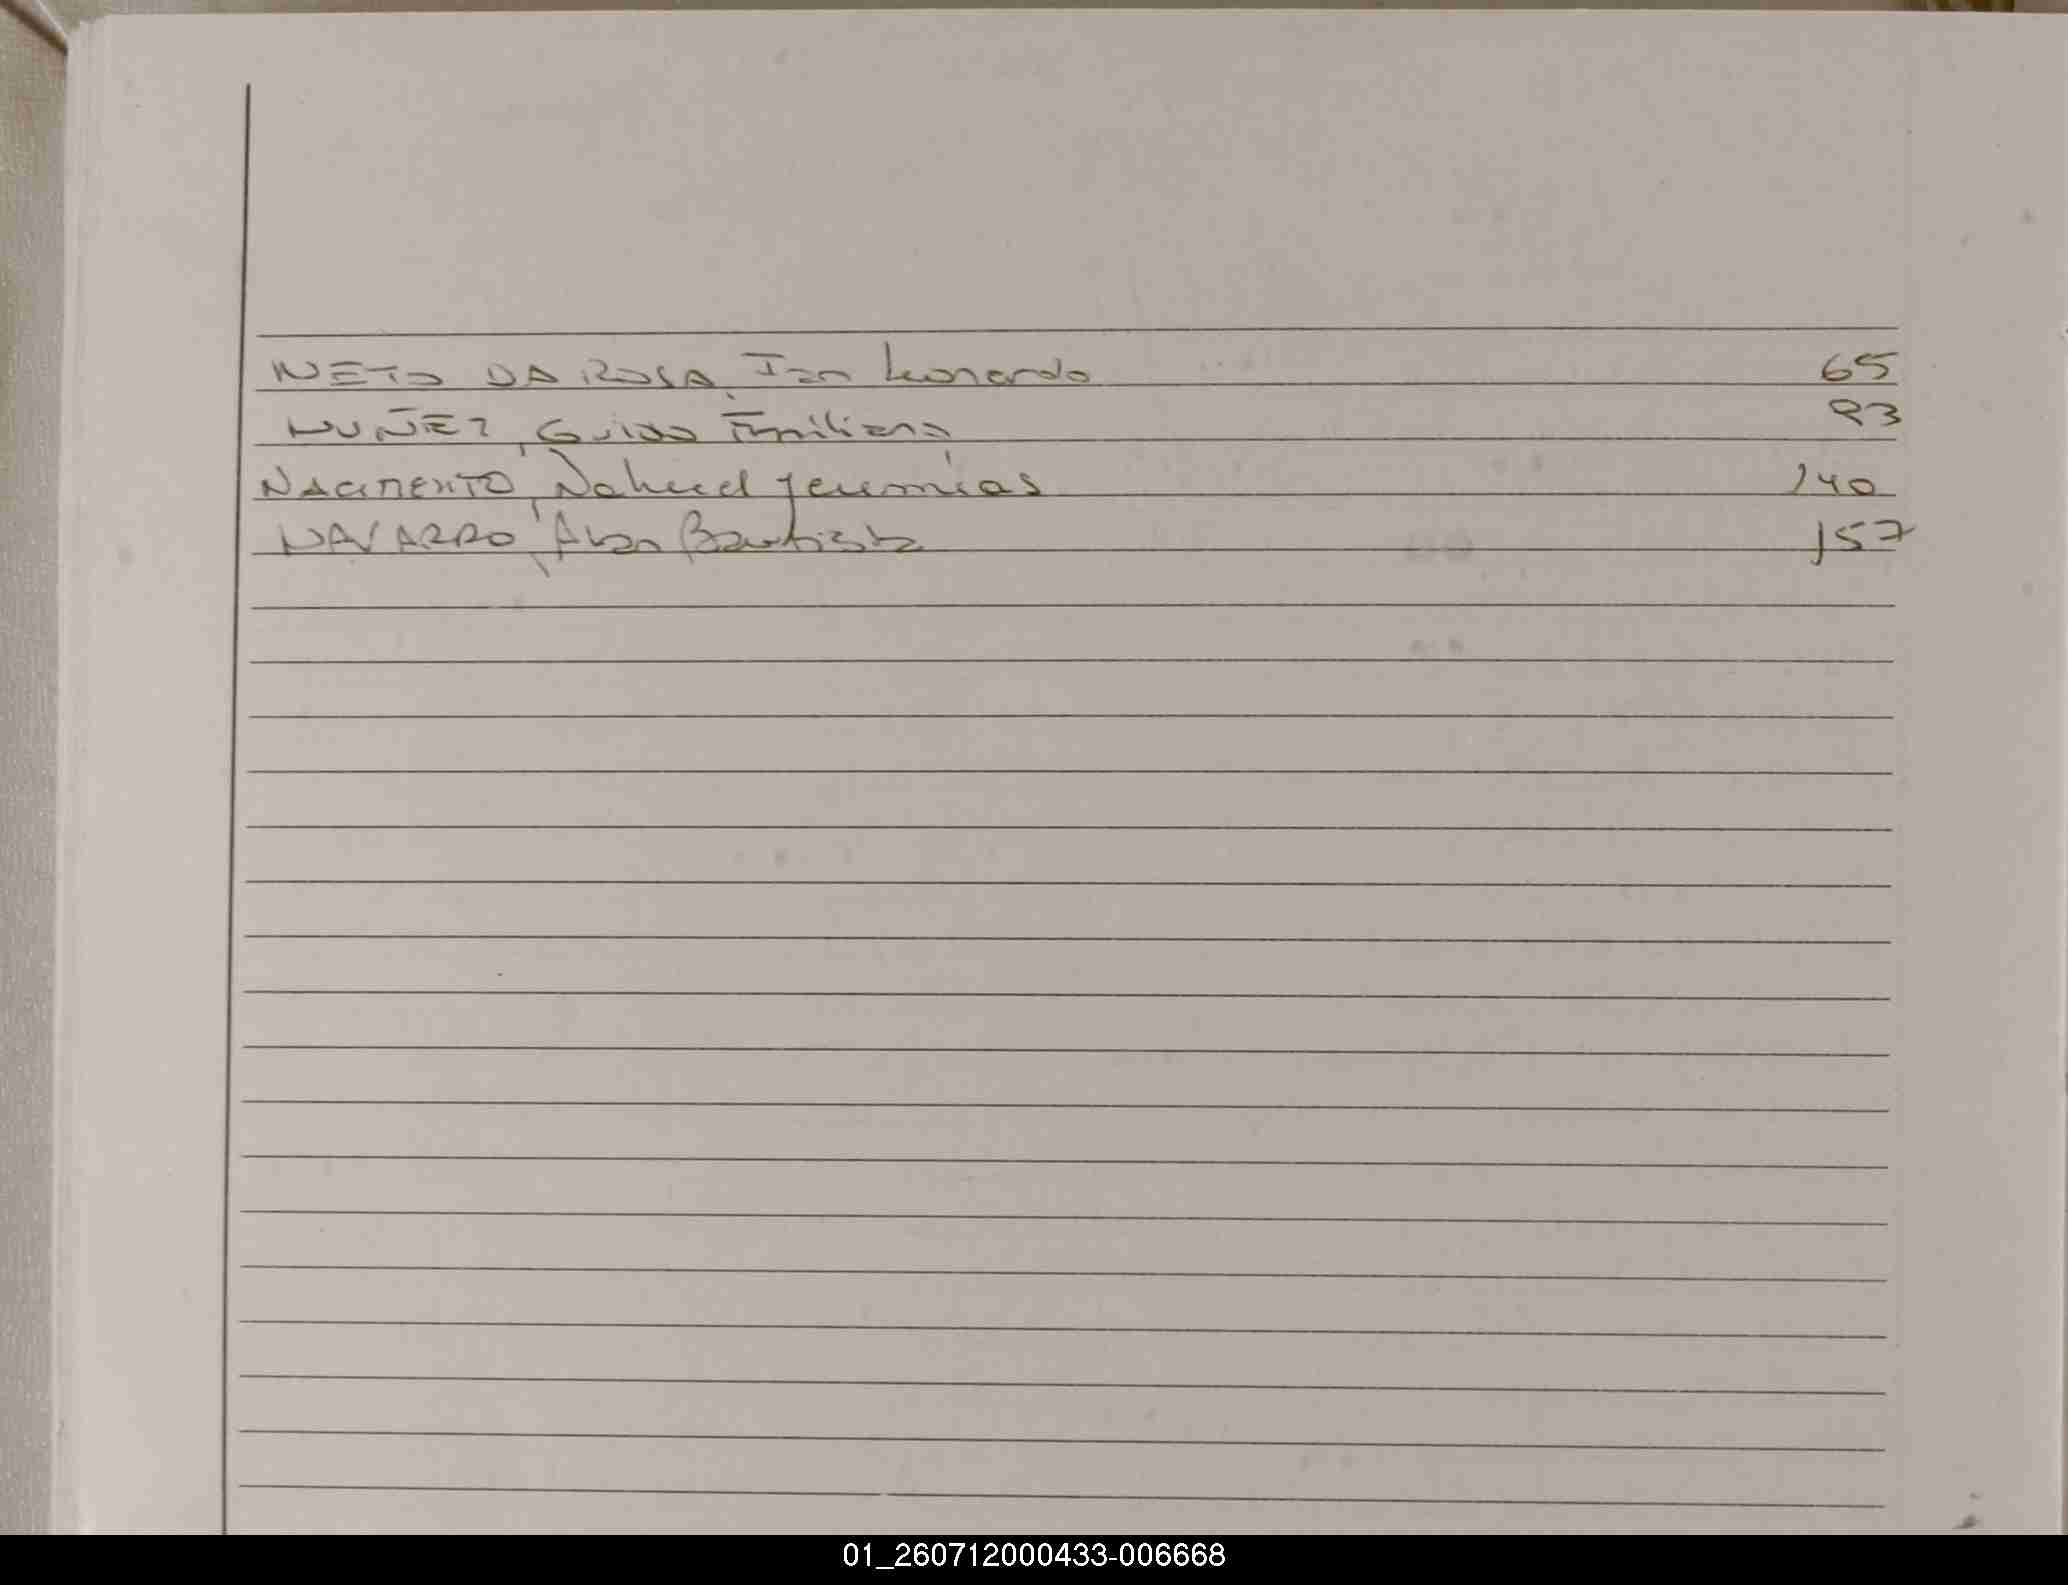 NETO DA ROSA, Ian Leonardo 65
NUÑEZ, Guido Emiliano 93
NACIMENTO, Nahuel Jeremías 140
NAVARRO, Alan Bautista 157
01_260712000433-006668